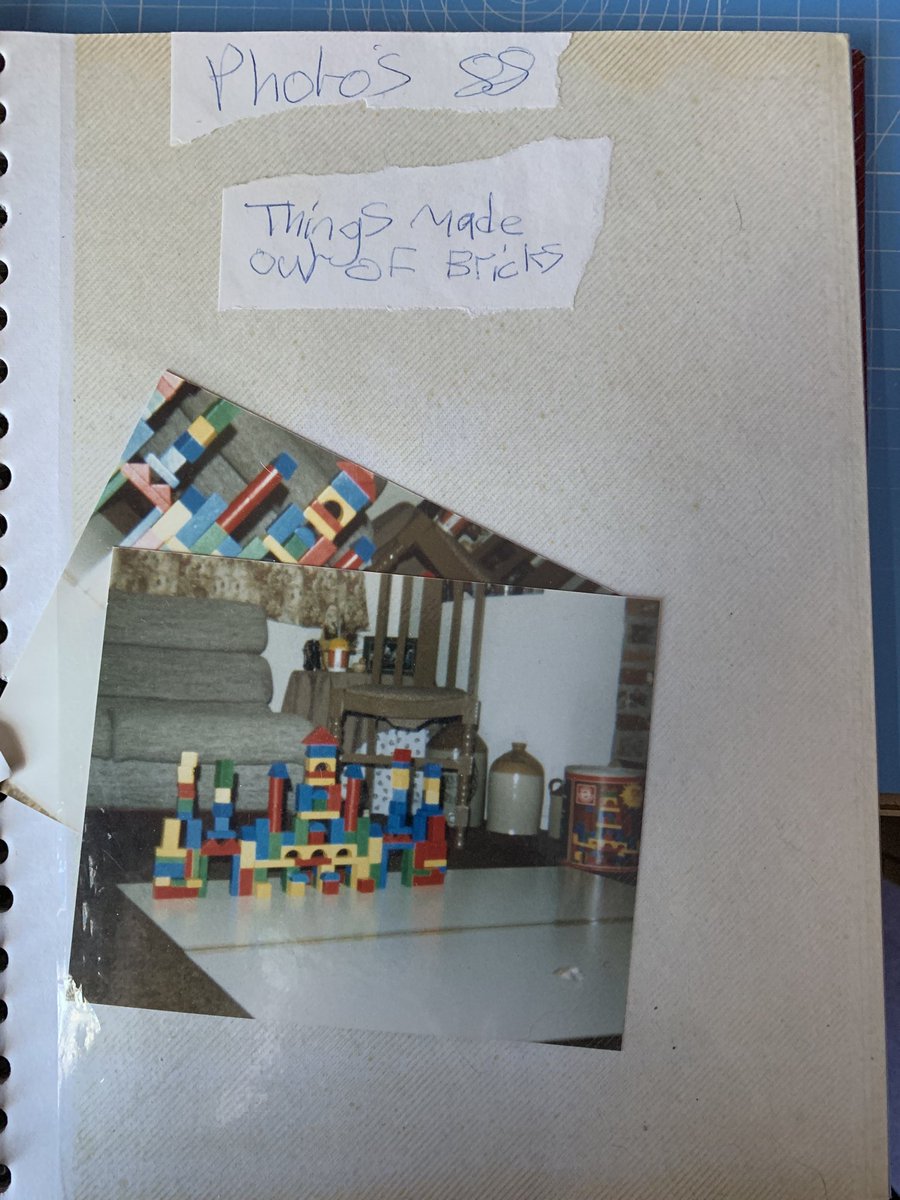 Photo's 88
Things Made
out OF Bricks